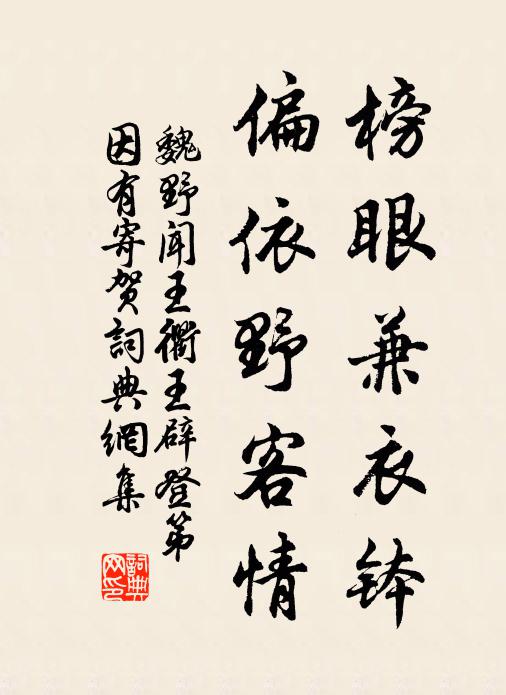 榜眼兼衣鉢
偏依野客情
魏野聞王衢王辟登第
因有寄賀詞典網集
詞典网印